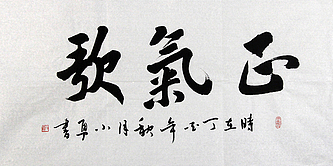 正氣歌
時在丁亥年秋月小書